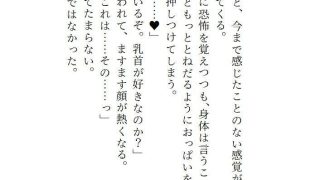 と、今まで感じたことのない感覚が
てくる。
に恐怖を覚えつつも、身体は言うこ
ともっととねだるようにおっぱいを
押しつけてしまう。
……♥」
いるぞ。乳首が好きなのか?」
われて、ますます顔が熱くなる。
これは……その……っ」
てたまらない。
ではなかった。